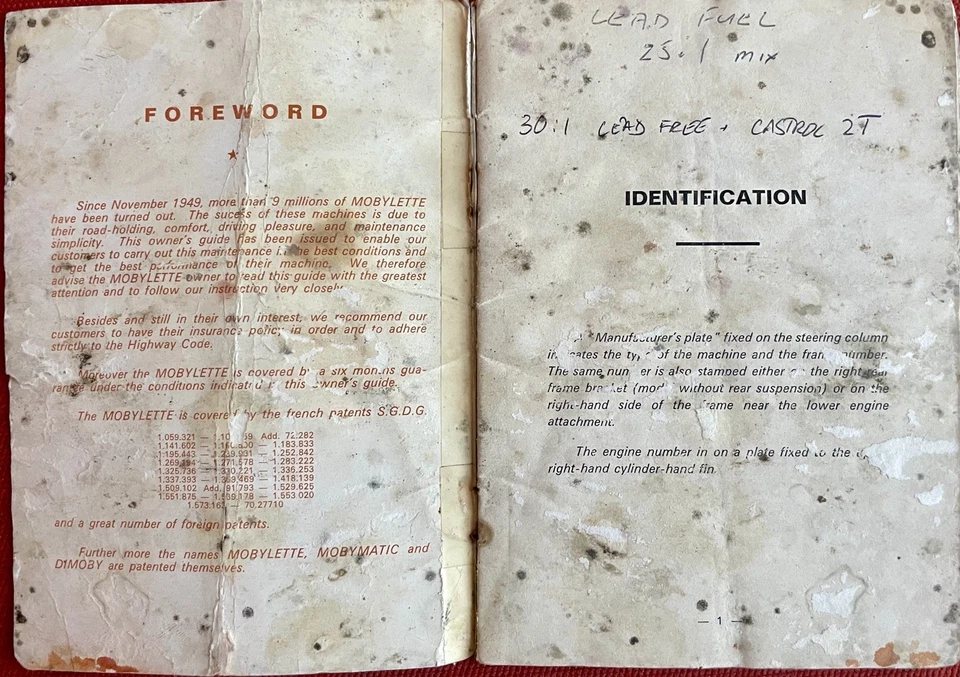 FOREWORD
Since November 1949, more than 9 millions of MOBYLETTE
have been turned out. The sucess of these machines is due to
their road-holding, comfort, driving pleasure, and maintenance
simplicity. This owner's guide has been issued to enable our
customers to carry out this maintenance in the best conditions and
to get the best performance of their machine. We therefore
advise the MOBYLETTE owner to read this guide with the greatest
attention and to follow our instruction very closely.
Besides and still in their own interest, we recommend our
customers to have their insurance policy in order and to adhere
strictly to the Highway Code.
Moreover the MOBYLETTE is covered by a six months gua-
rantee under the conditions indicated in this owner's guide.
The MOBYLETTE is covered by the french patents S.G.D.G.
1.059.321 — Add. 72.282
1.141.602 — — 1.183.833
1.195.443 — — 1.252.842
— 1.271.578 — 1.283.222
1.325.736 — — 1.336.253
1.337.393 — — 1.418.139
1.509.102 Add. 91.793 — 1.529.625
1.551.875 — — 1.553.020
— 70.27710
and a great number of foreign patents.
Further more the names MOBYLETTE, MOBYMATIC and
DIMOBY are patented themselves.
LEAD FUEL
25:1 mix
30:1 LEAD FREE + CASTROL 2T
IDENTIFICATION
"Manufacturer's plate" fixed on the steering column
indicates the type of the machine and the frame number.
The same number is also stamped either on the right rear
frame bracket (model without rear suspension) or on the
right-hand side of the frame near the lower engine
attachment.
The engine number in on a plate fixed to the
right-hand cylinder-hand fin.
— 1 —